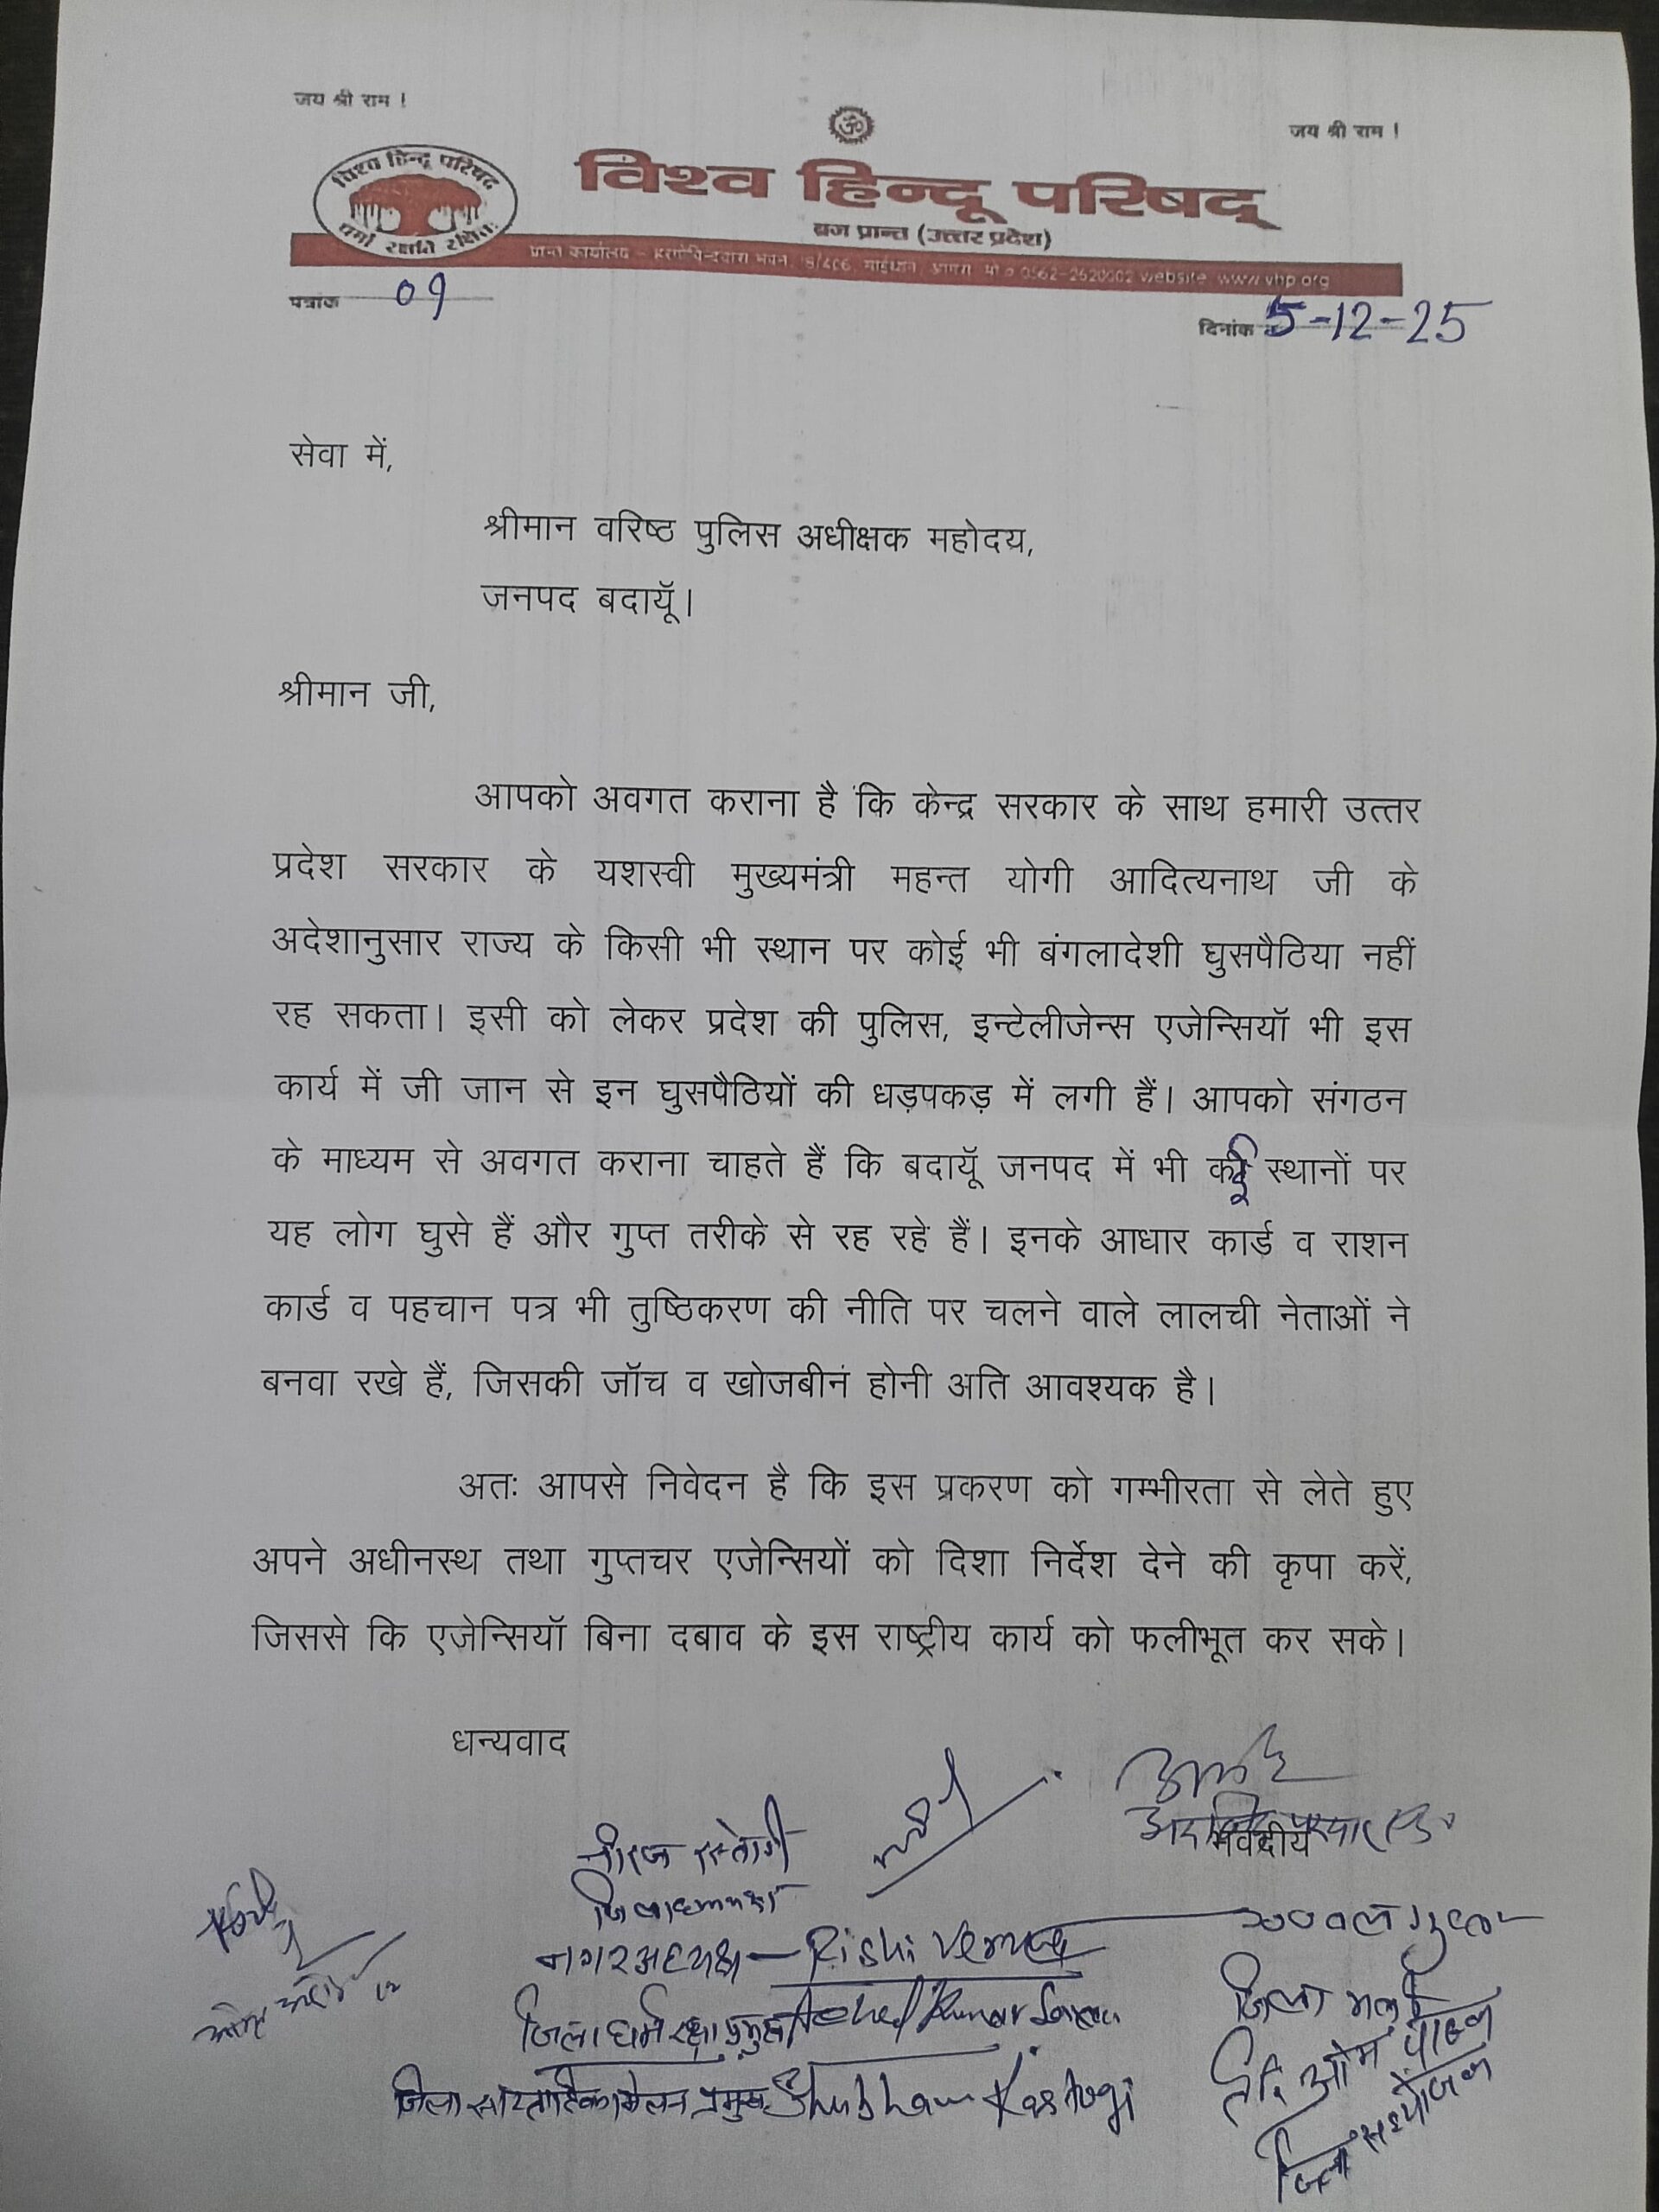 जय श्री राम !
जय श्री राम !
विश्व हिन्दू परिषद
धर्मो रक्षति रक्षितः
ॐ
विश्व हिन्दू परिषद्
ब्रज प्रान्त (उत्तर प्रदेश)
प्रान्त कार्यालय - भवन, आगरा website www.vhp.org
पत्रांक 09
दिनांक 5-12-25
सेवा में,
श्रीमान वरिष्ठ पुलिस अधीक्षक महोदय,
जनपद बदायूॅ।
श्रीमान जी,
आपको अवगत कराना है कि केन्द्र सरकार के साथ हमारी उत्तर
प्रदेश सरकार के यशस्वी मुख्यमंत्री महन्त योगी आदित्यनाथ जी के
अदेशानुसार राज्य के किसी भी स्थान पर कोई भी बंगलादेशी घुसपैठिया नहीं
रह सकता। इसी को लेकर प्रदेश की पुलिस, इन्टेलीजेन्स एजेन्सियॉ भी इस
कार्य में जी जान से इन घुसपैठियों की धड़पकड़ में लगी हैं। आपको संगठन
के माध्यम से अवगत कराना चाहते हैं कि बदायूॅ जनपद में भी कई स्थानों पर
यह लोग घुसे हैं और गुप्त तरीके से रह रहे हैं। इनके आधार कार्ड व राशन
कार्ड व पहचान पत्र भी तुष्ठिकरण की नीति पर चलने वाले लालची नेताओं ने
बनवा रखे हैं, जिसकी जॉच व खोजबीनं होनी अति आवश्यक है।
अतः आपसे निवेदन है कि इस प्रकरण को गम्भीरता से लेते हुए
अपने अधीनस्थ तथा गुप्तचर एजेन्सियों को दिशा निर्देश देने की कृपा करें,
जिससे कि एजेन्सियॉ बिना दबाव के इस राष्ट्रीय कार्य को फलीभूत कर सके।
धन्यवाद
भवदीय
रस्तोगी
नगर अध्यक्ष - Rishi Verma
जिला धर्म रक्षा प्रमुख Kumar
जिला मंत्री
जिला प्रमुख Shubham Rastogi
हरि ओम पाठक
जिला संयोजक